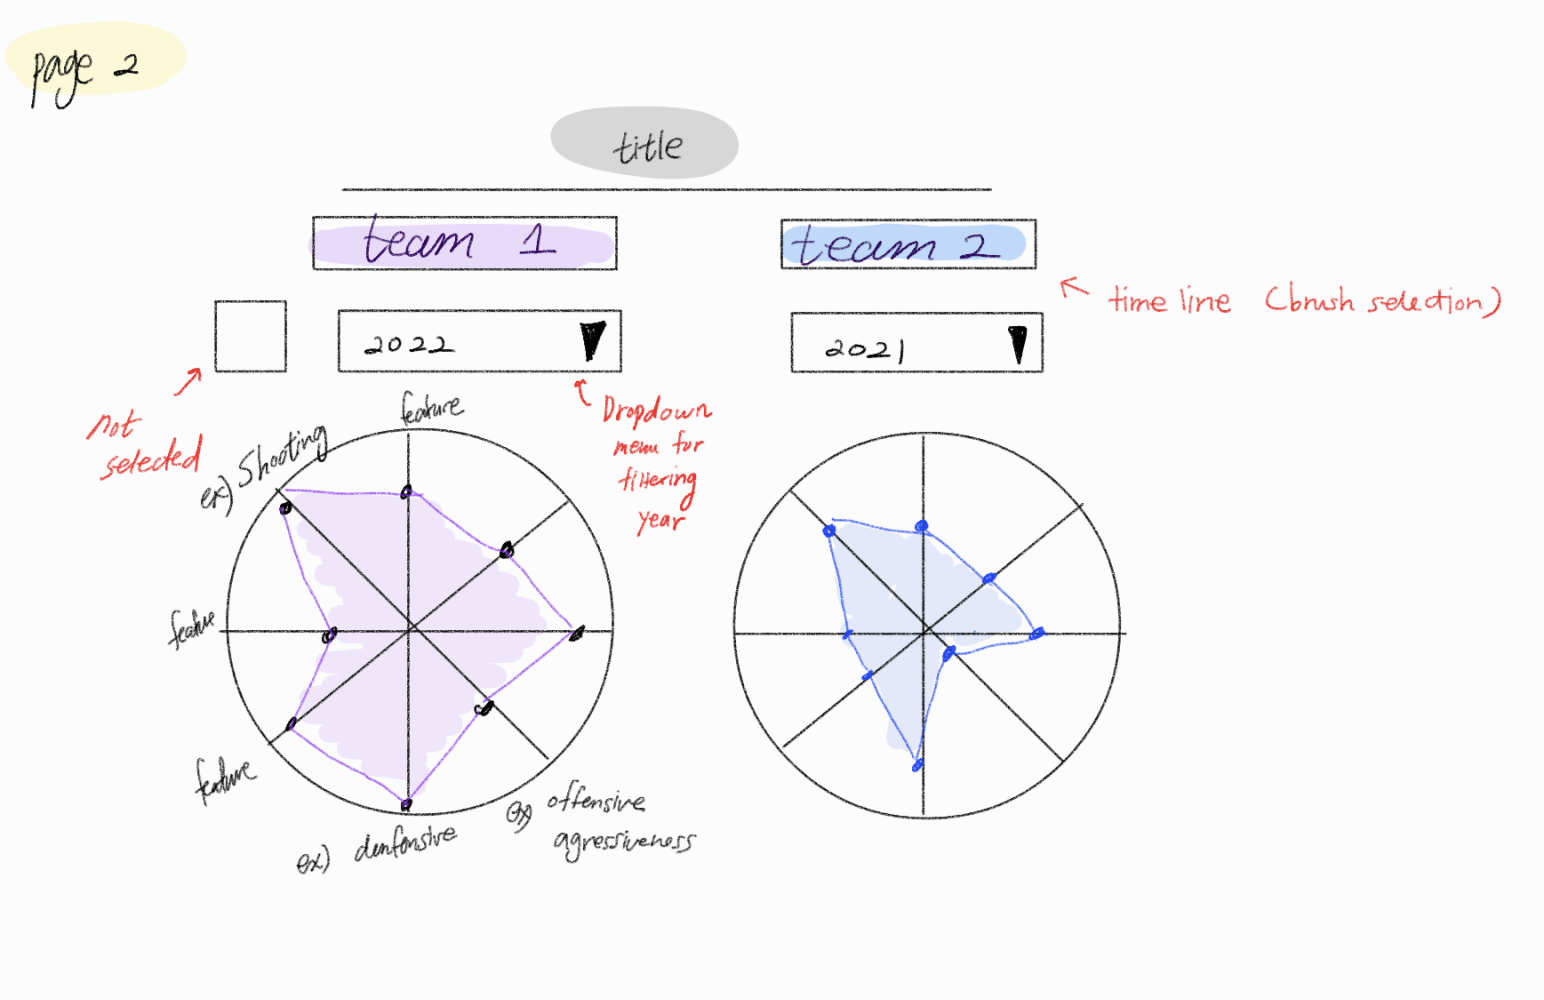 page 2
title
team 1
team 2
time line (brush selection)
2022
2021
not
selected
Dropdown
menu for
filtering
year
feature
ex) Shooting
feature
feature
ex) denfonsive
ex) offensive
agressiveness